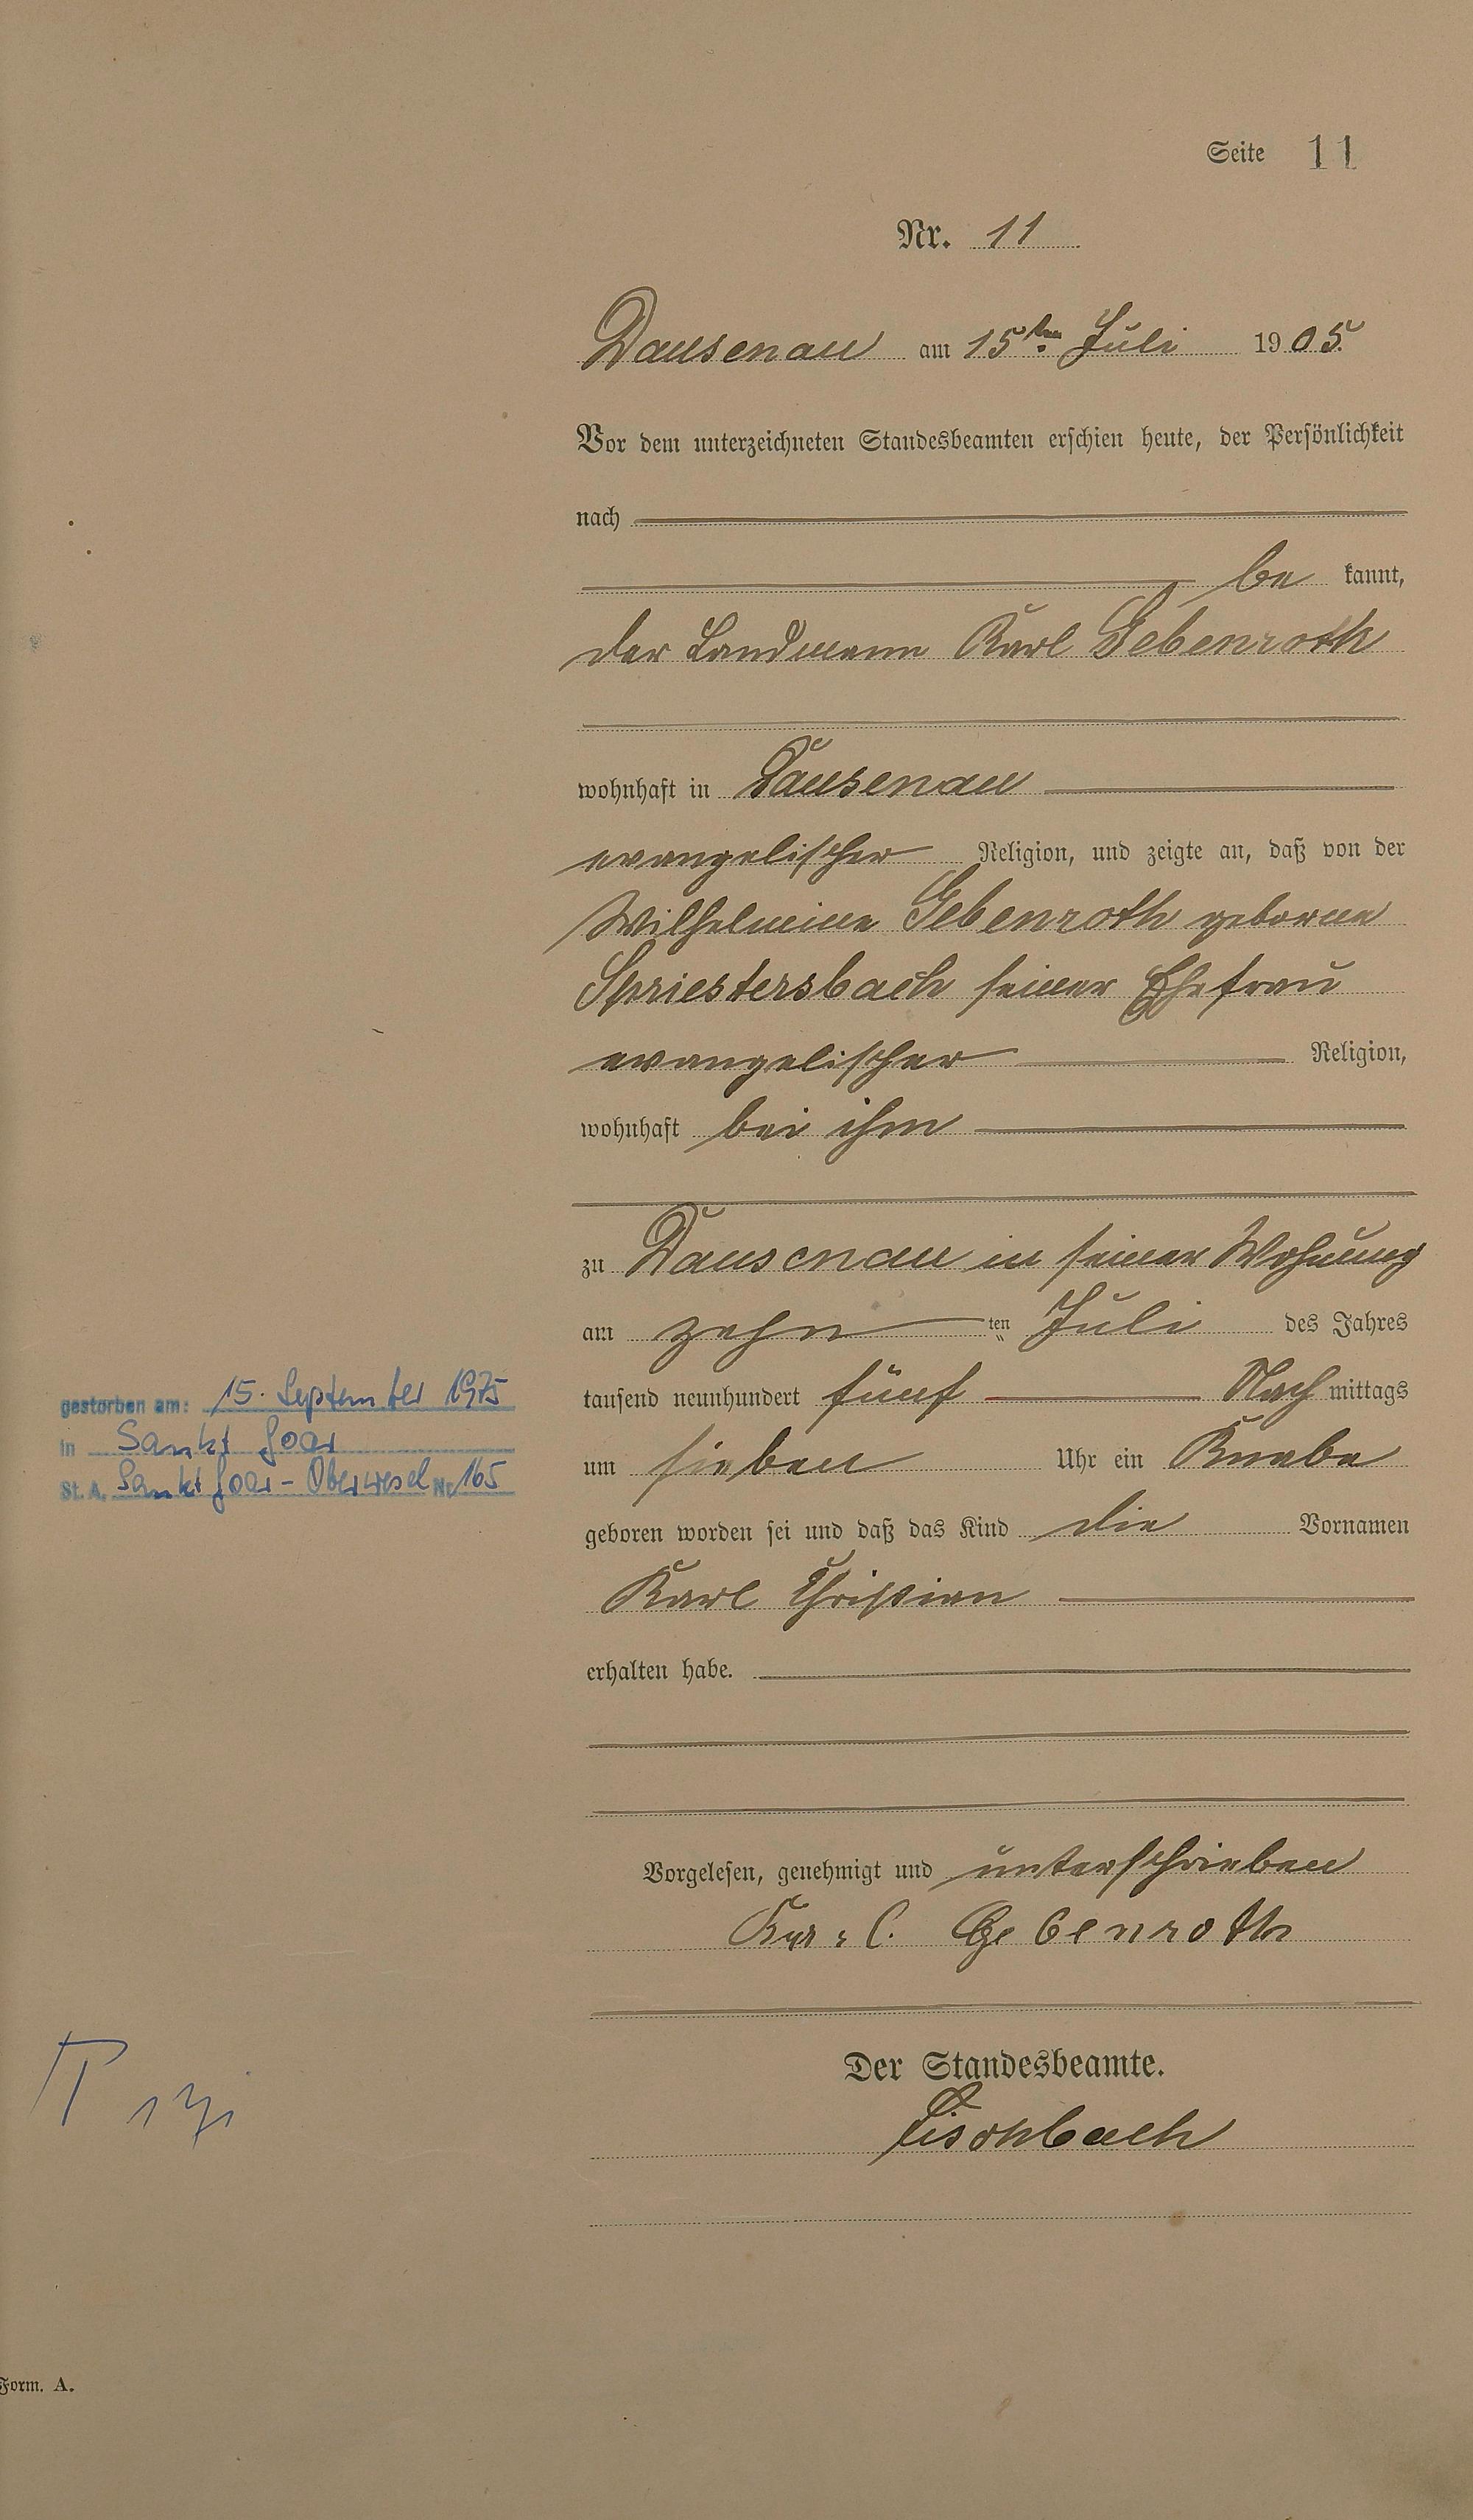 Seite 11
Nr. 11
Dausenau am 15ten Juli 1905.
Vor dem unterzeichneten Standesbeamten erschien heute, der Persönlichkeit
nach
be kannt,
der Landmann Karl Gebenroth
wohnhaft in Dausenau
evangelischer Religion, und zeigte an, daß von der
Wilhelmine Gebenroth geborne
Spriestersbach seiner Ehefrau
evangelischer Religion,
wohnhaft bei ihm
zu Dausenau in seiner Wohnung
am zehn ten Juli des Jahres
tausend neunhundert fünf Nach mittags
um sieben Uhr ein Knabe
geboren worden sei und daß das Kind die Vornamen
Karl Christian
erhalten habe.
gestorben am: 15. September 1975
in Sankt Goar
St. A. Sankt Goar - Oberwesel Nr. 165
Vorgelesen, genehmigt und unterschrieben
Karl. Gebenroth
Der Standesbeamte.
Fischbach
Form. A.